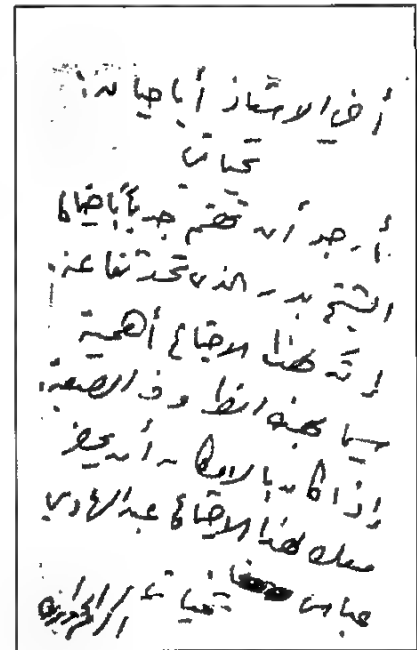 أخي الاستاذ أبا حيان:
تحياتي
أرجو أن تهتم جدياً باجتماع
الشيخ بدر الذي تحدثنا عنه.
إنه لهذا الاجتماع أهمية
سيما بهذه الظروف الصعبة.
إذا كان بالامكان أن يحضر
معك هذا الاجتماع عبد الهادي
عباس